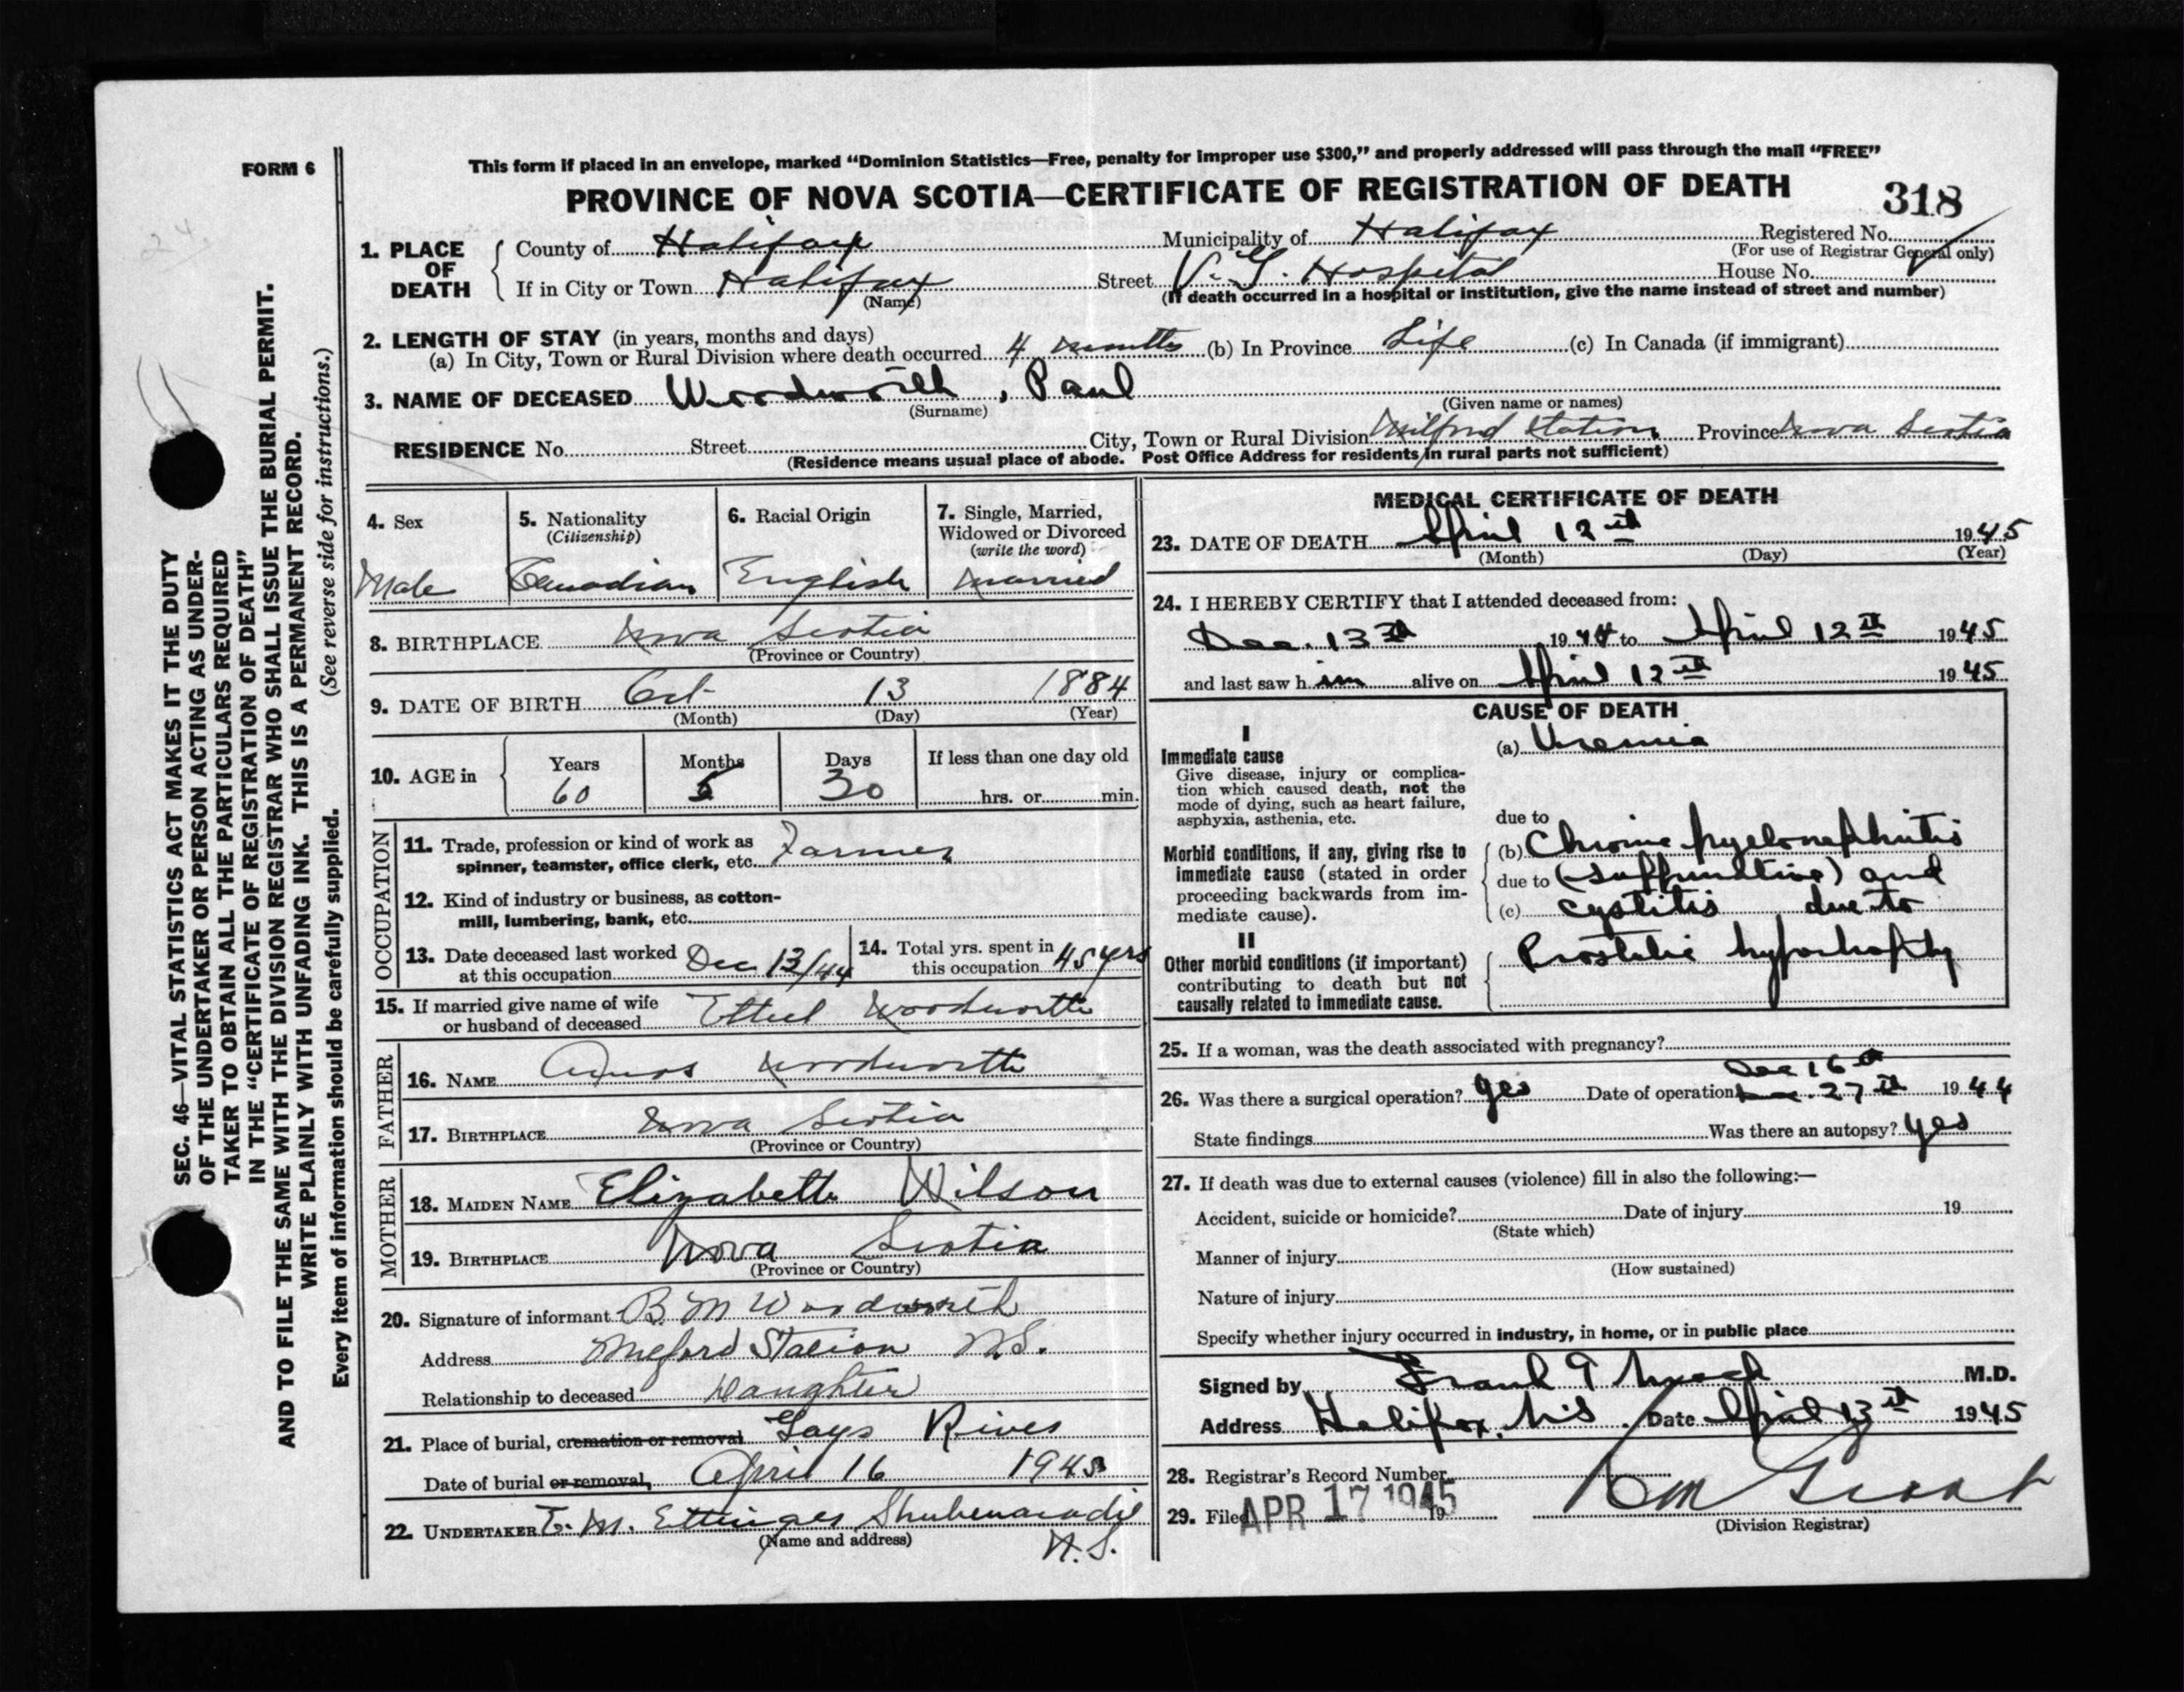 FORM 6
This form if placed in an envelope, marked "Dominion Statistics—Free, penalty for improper use $300," and properly addressed will pass through the mail "FREE"
PROVINCE OF NOVA SCOTIA—CERTIFICATE OF REGISTRATION OF DEATH
318
24.
SEC. 46—VITAL STATISTICS ACT MAKES IT THE DUTY
OF THE UNDERTAKER OR PERSON ACTING AS UNDER-
TAKER TO OBTAIN ALL THE PARTICULARS REQUIRED
IN THE "CERTIFICATE OF REGISTRATION OF DEATH"
AND TO FILE THE SAME WITH THE DIVISION REGISTRAR WHO SHALL ISSUE THE BURIAL PERMIT.
WRITE PLAINLY WITH UNFADING INK. THIS IS A PERMANENT RECORD.
Every item of information should be carefully supplied. (See reverse side for instructions.)
1. PLACE OF DEATH
County of Halifax Municipality of Halifax Registered No.
(For use of Registrar General only)
If in City or Town Halifax Street V. G. Hospital House No.
(Name) (If death occurred in a hospital or institution, give the name instead of street and number)
2. LENGTH OF STAY (in years, months and days)
(a) In City, Town or Rural Division where death occurred 4 months (b) In Province Life (c) In Canada (if immigrant)
3. NAME OF DECEASED Woodworth, Paul
(Surname) (Given name or names)
RESIDENCE No. Street City, Town or Rural Division Milford Station Province Nova Scotia
(Residence means usual place of abode. Post Office Address for residents in rural parts not sufficient)
4. Sex 5. Nationality (Citizenship) 6. Racial Origin 7. Single, Married, Widowed or Divorced (write the word)
Male Canadian English Married
8. BIRTHPLACE Nova Scotia
(Province or Country)
9. DATE OF BIRTH Oct 13 1884
(Month) (Day) (Year)
10. AGE in Years Months Days If less than one day old
60 5 30 hrs. or min.
OCCUPATION
11. Trade, profession or kind of work as
spinner, teamster, office clerk, etc. Farmer
12. Kind of industry or business, as cotton-
mill, lumbering, bank, etc.
13. Date deceased last worked at this occupation Dec 13/44
14. Total yrs. spent in this occupation 45 yrs
15. If married give name of wife
or husband of deceased Ethel Woodworth
FATHER
16. NAME Amos Woodworth
17. BIRTHPLACE Nova Scotia
(Province or Country)
MOTHER
18. MAIDEN NAME Elizabeth Wilson
19. BIRTHPLACE Nova Scotia
(Province or Country)
20. Signature of informant B. M Woodworth
Address Milford Station N.S.
Relationship to deceased Daughter
21. Place of burial, cremation or removal Gays River
Date of burial or removal, April 16 1945
22. UNDERTAKER E. M. Ettinger Shubenacadie
(Name and address) N.S.
MEDICAL CERTIFICATE OF DEATH
23. DATE OF DEATH April 12th 1945
(Month) (Day) (Year)
24. I HEREBY CERTIFY that I attended deceased from:
Dec. 13th 1944 to April 12th 1945
and last saw him alive on April 12th 1945
CAUSE OF DEATH
I
Immediate cause (a) Uremia
Give disease, injury or complica-
tion which caused death, not the
mode of dying, such as heart failure,
asphyxia, asthenia, etc.
due to
Morbid conditions, if any, giving rise to (b) Chronic pyelonephritis
immediate cause (stated in order due to (suppurative) and
proceeding backwards from im-
mediate cause). (c) cystitis due to
II
Prostatic hypertrophy
Other morbid conditions (if important)
contributing to death but not
causally related to immediate cause.
25. If a woman, was the death associated with pregnancy?
Dec 16th
26. Was there a surgical operation? yes Date of operation 27th 1944
State findings Was there an autopsy? yes
27. If death was due to external causes (violence) fill in also the following:—
Accident, suicide or homicide? Date of injury 19
(State which)
Manner of injury
(How sustained)
Nature of injury
Specify whether injury occurred in industry, in home, or in public place
Signed by Frank G M.D.
Address Halifax, N.S. Date April 13th 1945
28. Registrar's Record Number
29. Filed APR 17 1945 19
(Division Registrar)